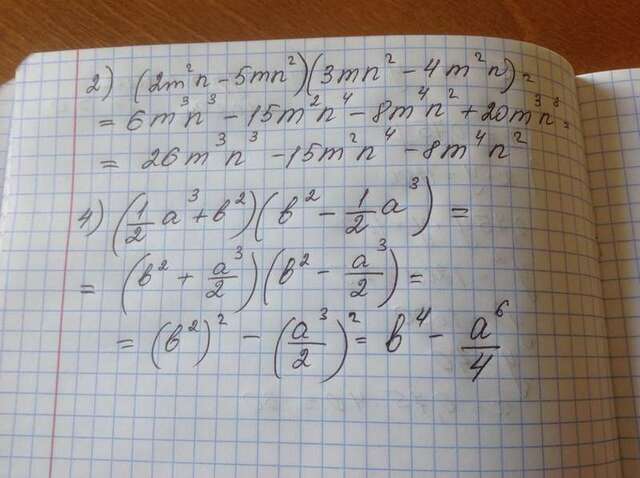 2) (2m²n - 5mn²)(3mn² - 4m²n) =
= 6m³n³ - 15m²n⁴ - 8m⁴n² + 20m³n³ =
= 26m³n³ - 15m²n⁴ - 8m⁴n²
4) (1/2 a³ + b²)(b² - 1/2 a³) =
= (b² + a³/2)(b² - a³/2) =
= (b²)² - (a³/2)² = b⁴ - a⁶/4